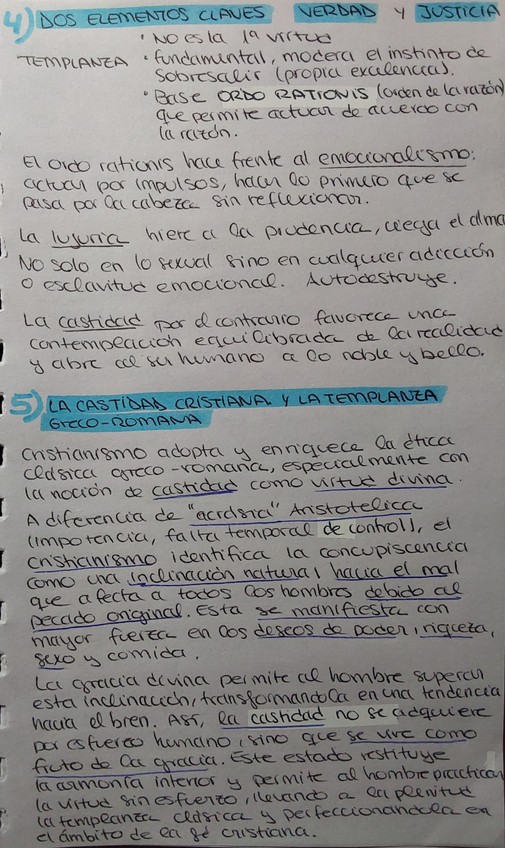 4) DOS ELEMENTOS CLAVES VERDAD Y JUSTICIA
• No es la 1ª virtud
TEMPLANZA • fundamental, modera el instinto de
sobresalir (propia excelencia).
• Base ORDO RATIONIS (orden de la razón)
que permite actuar de acuerdo con
la razón.
El ordo rationis hace frente al emocionalismo:
actuar por impulsos, hacer lo primero que se
pasa por la cabeza sin reflexionar.
La lujuria hiere a la prudencia, ciega el alma
NO solo en lo sexual sino en cualquier adicción
o esclavitud emocional. Autodestruye.
La castidad por el contrario favorece una
contemplación equilibrada de la realidad
y abre al ser humano a lo noble y bello.
5) LA CASTIDAD CRISTIANA Y LA TEMPLANZA
GRECO-ROMANA
Cristianismo adopta y enriquece la ética
clásica greco-romana, especialmente con
la noción de castidad como virtud divina.
A diferencia de "acrasia" Aristotélica
(impotencia, falta temporal de control), el
cristianismo identifica la concupiscencia
como una inclinación natural hacia el mal
que afecta a todos los hombres debido al
pecado original. Esta se manifiesta con
mayor fuerza en los deseos de poder, riqueza,
sexo y comida.
La gracia divina permite al hombre superar
esta inclinación, transformandola en una tendencia
hacia el bien. Así, la castidad no se adquiere
por esfuerzo humano, sino que se vive como
fruto de la gracia. Este estado restituye
la armonía interior y permite al hombre practicar
la virtud sin esfuerzo, llevando a la plenitud
la templanza clásica y perfeccionandola en
el ámbito de la fé cristiana.